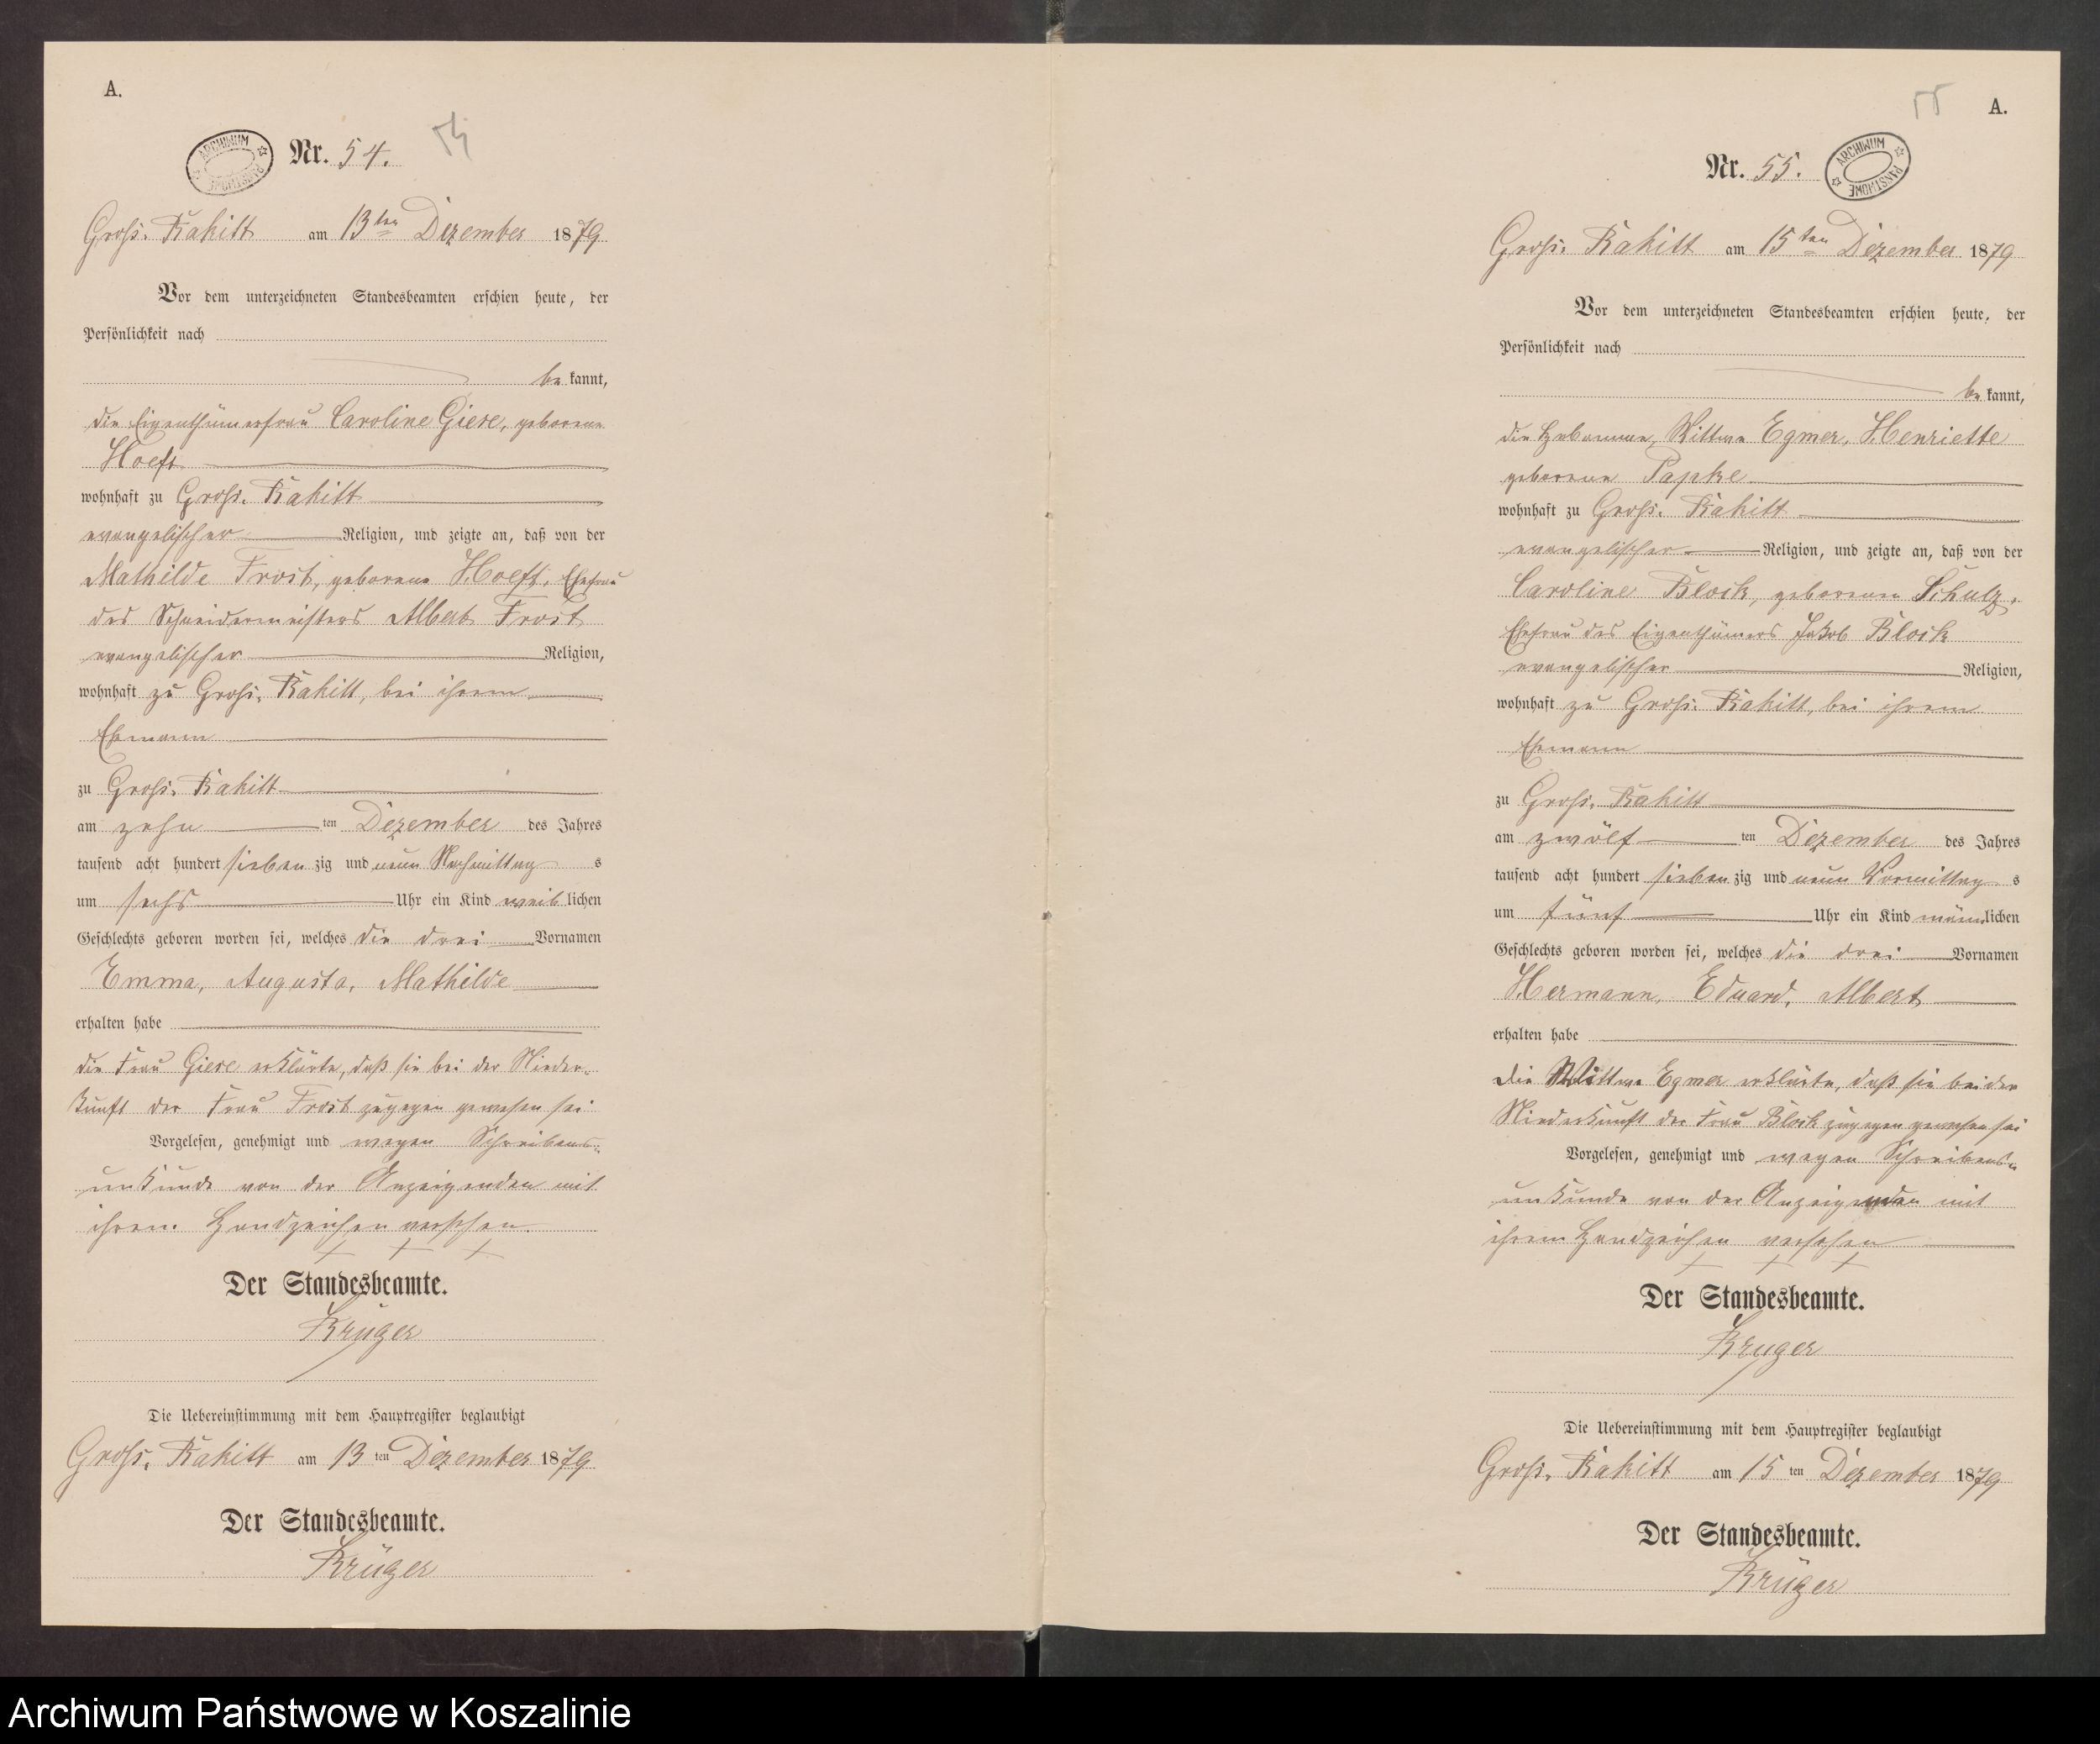 A.
ARCHIWUM PAŃSTWOWE
Nr. 54.
54
Groß. Rakitt am 13ten Dezember 1879.
Vor dem unterzeichneten Standesbeamten erschien heute, der
Persönlichkeit nach
be kannt,
die Eigenthümerfrau Caroline Giese, geborene
Hoeft
wohnhaft zu Groß. Rakitt
evangelischer Religion, und zeigte an, daß von der
Mathilde Frost, geborene Hoeft, Ehefrau
des Schneidermeisters Albert Frost
evangelischer Religion,
wohnhaft zu Groß. Rakitt, bei ihrem
Ehemann
zu Groß. Rakitt
am zehn ten Dezember des Jahres
tausend acht hundert sieben zig und neun Nachmittag s
um sechs Uhr ein Kind weib lichen
Geschlechts geboren worden sei, welches die drei Vornamen
Emma, Augusta, Mathilde
erhalten habe
die Frau Giese erklärte, daß sie bei der Nieder-
kunft der Frau Frost zugegen gewesen sei
Vorgelesen, genehmigt und wegen Schreibens-
unkunde von der Anzeigenden mit
ihrem Handzeichen versehen.
+ + +
Der Standesbeamte.
Krüger
Die Uebereinstimmung mit dem Hauptregister beglaubigt
Groß. Rakitt am 13 ten Dezember 1879
Der Standesbeamte.
Krüger
55
A.
Nr. 55.
ARCHIWUM PAŃSTWOWE
Groß. Rakitt am 15ten Dezember 1879
Vor dem unterzeichneten Standesbeamten erschien heute, der
Persönlichkeit nach
be kannt,
die Hebamme, Wittwe Egmer, Henriette
geborene Papke
wohnhaft zu Groß. Rakitt
evangelischer Religion, und zeigte an, daß von der
Caroline Block, geborenen Schulz,
Ehefrau des Eigenthümers Jakob Block
evangelischer Religion,
wohnhaft zu Groß. Rakitt, bei ihrem
Ehemann
zu Groß. Rakitt
am zwölf ten Dezember des Jahres
tausend acht hundert sieben zig und neun Vormittag s
um fünf Uhr ein Kind männlichen
Geschlechts geboren worden sei, welches die drei Vornamen
Hermann, Eduard, Albert
erhalten habe
Die Wittwe Egmer erklärte, daß sie bei der
Niederkunft der Frau Block zugegen gewesen sei
Vorgelesen, genehmigt und wegen Schreibens-
unkunde von der Anzeigenden mit
ihrem Handzeichen versehen
+ + +
Der Standesbeamte.
Krüger
Die Uebereinstimmung mit dem Hauptregister beglaubigt
Groß. Rakitt am 15 ten Dezember 1879
Der Standesbeamte.
Krüger
Archiwum Państwowe w Koszalinie